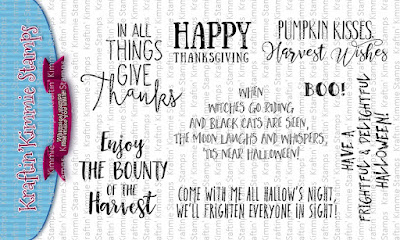 Kraftin' Kimmie Stamps
IN ALL
THINGS
GIVE
Thanks
HAPPY
THANKSGIVING
PUMPKIN KISSES,
Harvest Wishes
WHEN
WITCHES GO RIDING,
AND BLACK CATS ARE SEEN,
THE MOON LAUGHS AND WHISPERS,
'TIS NEAR HALLOWEEN!
BOO!
HAVE A
FRIGHTFUL & DELIGHTFUL
HALLOWEEN!
Enjoy
THE BOUNTY
OF THE
Harvest
COME WITH ME ALL HALLOW'S NIGHT,
WE'LL FRIGHTEN EVERYONE IN SIGHT!